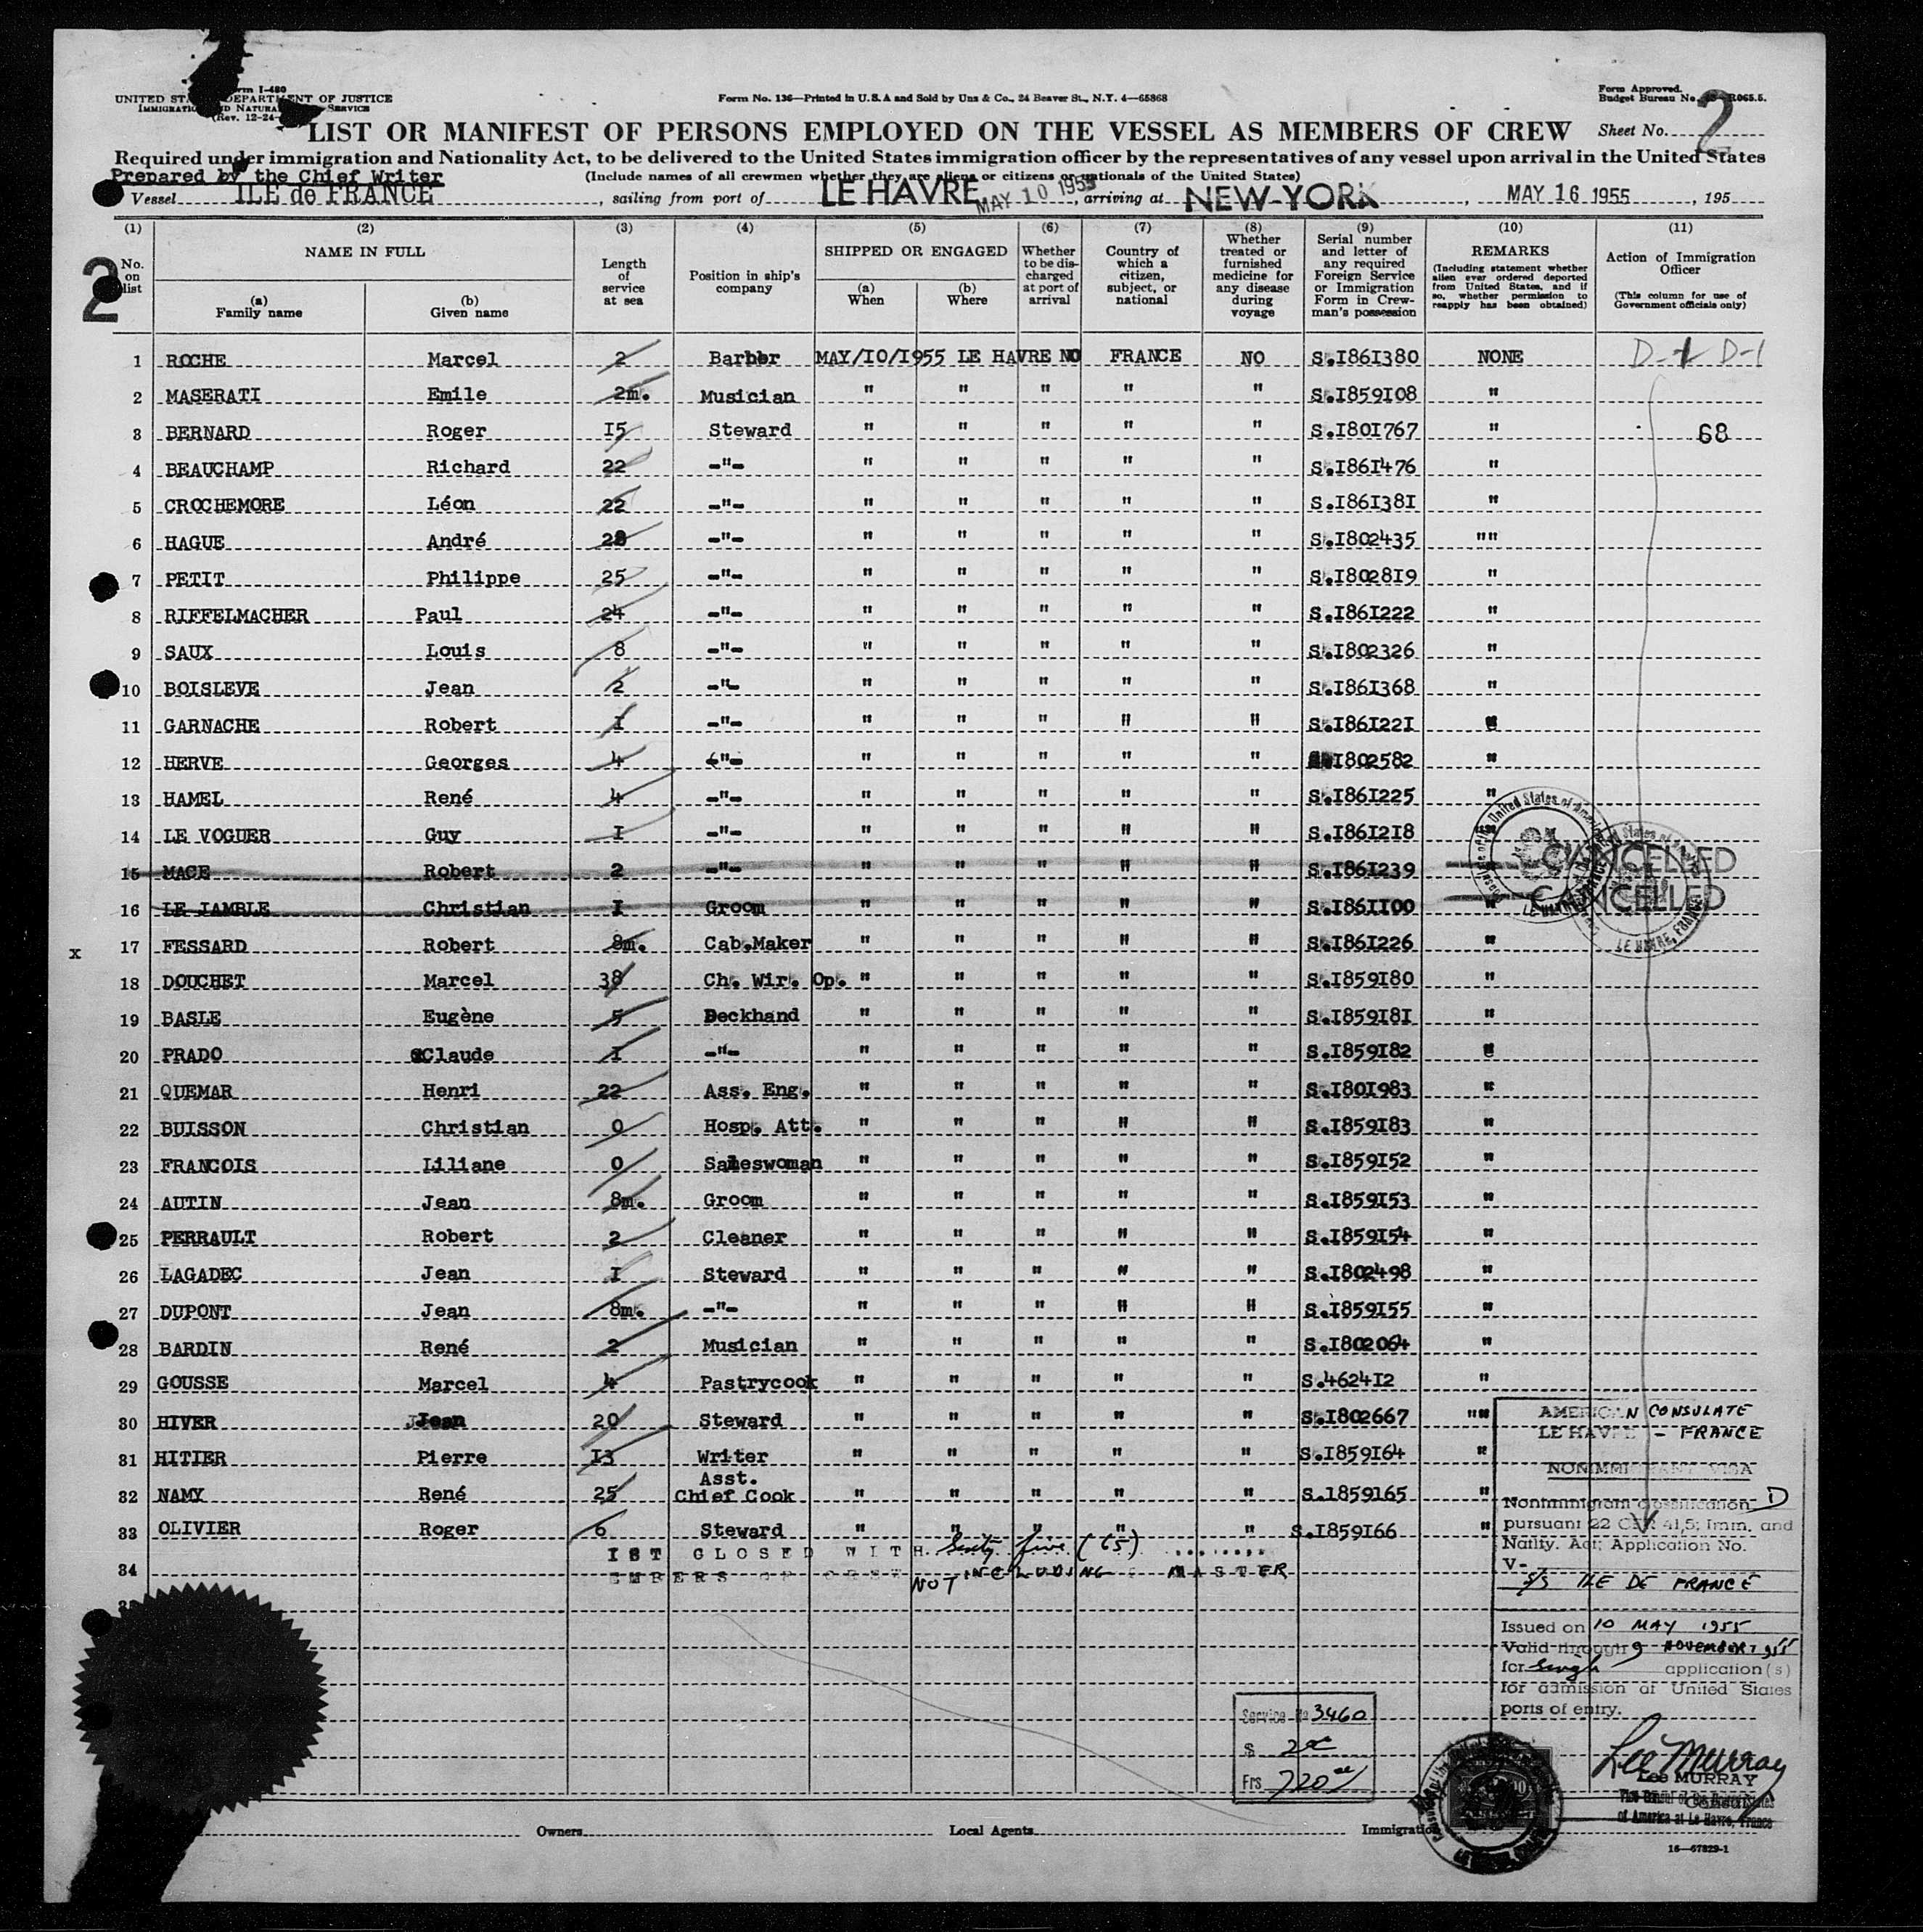 Form I-480
UNITED STATES DEPARTMENT OF JUSTICE
IMMIGRATION AND NATURALIZATION SERVICE
(Rev. 12-24-
Form No. 136—Printed in U.S.A and Sold by Unz & Co., 24 Beaver St., N.Y. 4—65868
Form Approved.
Budget Bureau No. R065.5.
LIST OR MANIFEST OF PERSONS EMPLOYED ON THE VESSEL AS MEMBERS OF CREW
Sheet No. 2
Required under immigration and Nationality Act, to be delivered to the United States immigration officer by the representatives of any vessel upon arrival in the United States
Prepared by the Chief Writer
(Include names of all crewmen whether they are aliens or citizens or nationals of the United States)
Vessel ILE de FRANCE, sailing from port of LE HAVRE MAY 10 1955, arriving at NEW-YORK, MAY 16 1955, 195
2
(1) No. on list
(2) NAME IN FULL
(a) Family name
(b) Given name
(3) Length of service at sea
(4) Position in ship's company
(5) SHIPPED OR ENGAGED
(a) When
(b) Where
(6) Whether to be discharged at port of arrival
(7) Country of which a citizen, subject, or national
(8) Whether treated or furnished medicine for any disease during voyage
(9) Serial number and letter of any required Foreign Service or Immigration Form in Crewman's possession
(10) REMARKS (Including statement whether alien ever ordered deported from United States, and if so, whether permission to reapply has been obtained)
(11) Action of Immigration Officer (This column for use of Government officials only)
1 ROCHE Marcel 2 Barber MAY/IO/I955 LE HAVRE NO FRANCE NO S.I86I380 NONE D-1 D-1
2 MASERATI Emile 2m. Musician " " " " " S.I859I08 "
3 BERNARD Roger I5 Steward " " " " " S.I80I767 " 68
4 BEAUCHAMP Richard 22 -"- " " " " " S.I86I476 "
5 CROCHEMORE Léon 22 -"- " " " " " S.I86I38I "
6 HAGUE André 28 -"- " " " " " S.I802435 ""
7 PETIT Philippe 25 -"- " " " " " S.I8028I9 "
8 RIFFELMACHER Paul 24 -"- " " " " " S.I86I222 "
9 SAUX Louis 8 -"- " " " " " S.I802326 "
10 BOISLEVE Jean 2 -"- " " " " " S.I86I368 "
11 GARNACHE Robert I -"- " " " " " S.I86I22I "
12 HERVE Georges 4 -"- " " " " " I802582 "
13 HAMEL René 4 -"- " " " " " S.I86I225 "
14 LE VOGUER Guy I -"- " " " " " S.I86I2I8 "
15 MACE Robert 2 -"- " " " " " S.I86I239 " CANCELLED
16 LE JAMBLE Christian I Groom " " " " " S.I86II00 " CANCELLED
x 17 FESSARD Robert 8m. Cab.Maker " " " " " S.I86I226 "
18 DOUCHET Marcel 38 Ch. Wir. Op. " " " " " S.I859I80 "
19 BASLE Eugène 5 Deckhand " " " " " S.I859I8I "
20 PRADO Claude I -"- " " " " " S.I859I82 "
21 QUEMAR Henri 22 Ass. Eng. " " " " " S.I80I983 "
22 BUISSON Christian 0 Hosp. Att. " " " " " S.I859I83 "
23 FRANCOIS Liliane 0 Saleswoman " " " " " S.I859I52 "
24 AUTIN Jean 8m. Groom " " " " " S.I859I53 "
25 PERRAULT Robert 2 Cleaner " " " " " S.I859I54 "
26 LAGADEC Jean I Steward " " " " " S.I802498 "
27 DUPONT Jean 8m. -"- " " " " " S.I859I55 "
28 BARDIN René 2 Musician " " " " " S.I802064 "
29 GOUSSE Marcel 4 Pastrycook " " " " " S.4624I2 "
30 HIVER Jean 20 Steward " " " " " S.I802667 ""
31 HITIER Pierre I3 Writer " " " " " S.I859I64 "
32 NAMY René 25 Asst. Chief Cook " " " " " S.1859165 "
33 OLIVIER Roger 6 Steward " " " " " S.I859I66 "
IST CLOSED WITH Sixty five (65)
34 EMBERS OF CREW NOT INCLUDING MASTER
AMERICAN CONSULATE
LE HAVRE - FRANCE
NONIMMIGRANT VISA
Nonimmigrant classification D
pursuant 22 CFR 41.5; Imm. and
Natlty. Act; Application No.
V-
S/S ILE DE FRANCE
Issued on 10 MAY 1955
Valid through 9 NOVEMBER 1955
for single application(s)
for admission at United States
ports of entry.
Service No 3460
$ 2
Frs 720
Lee Murray
Lee MURRAY
Vice Consul of the United States
of America at Le Havre, France
Owners
Local Agents
Immigration
16—67829-1